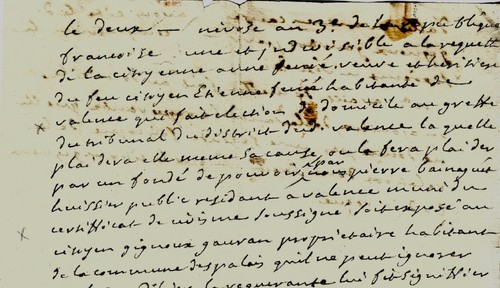 le deux — nivise an 3e de la republique
francoise une et indivisible a la requette
de la citoyenne anne feuié veuve et heritiere
du feu citoyen Etienne feuié habitante de
valence qui fait election de domicile au greffe
du tribunal du district dud. valence la quelle
plaidera elle meme sa cause ou le fera plaider
par un fondé de pouvoir par nous pierre
huissier public residant a valence muni du
certifficat de civisme soussigné soit exposé au
citoyen gignoux gauran proprietaire habitant
de la commune des palais qu'il ne peut ignorer
la requerante lui fit signiffier